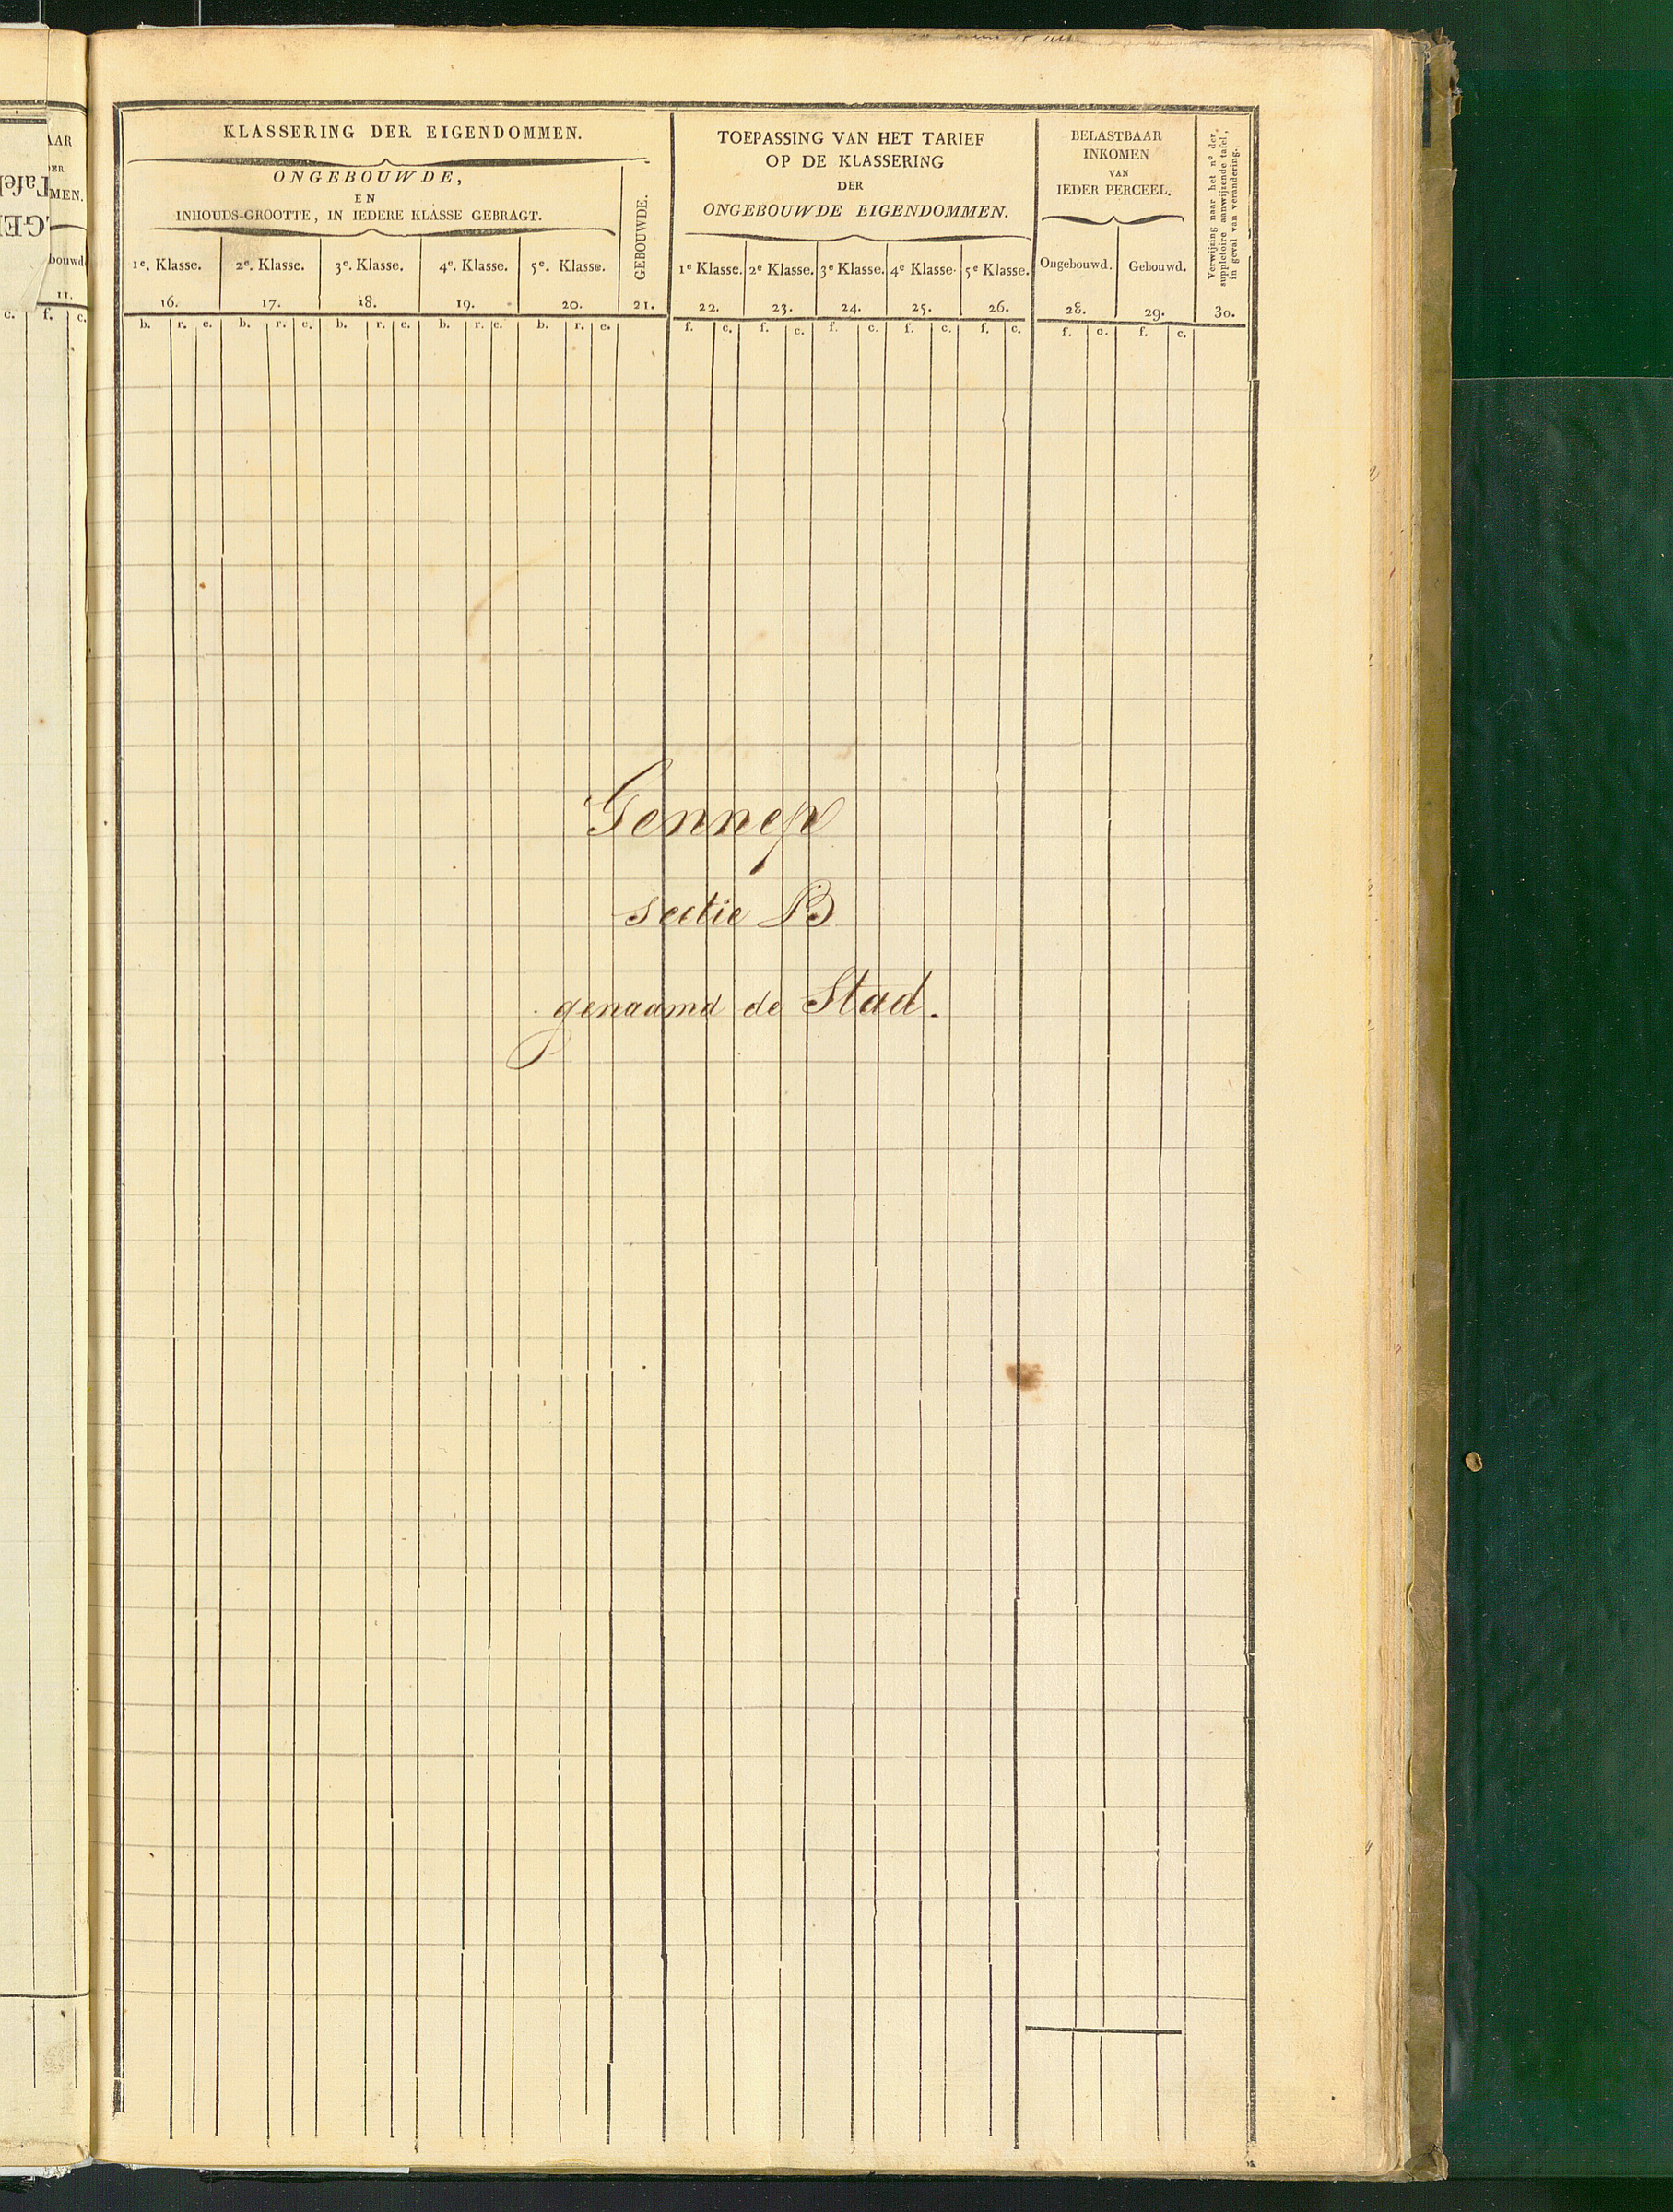 KLASSERING DER EIGENDOMMEN.
ONGEBOUWDE,
EN
INHOUDS-GROOTTE, IN IEDERE KLASSE GEBRAGT.
GEBOUWDE.
1e. Klasse. 2e. Klasse. 3e. Klasse. 4e. Klasse. 5e. Klasse.
16. 17. 18. 19. 20. 21.
b. r. e. b. r. e. b. r. e. b. r. e. b. r. e.
TOEPASSING VAN HET TARIEF
OP DE KLASSERING
DER
ONGEBOUWDE EIGENDOMMEN.
1e Klasse. 2e Klasse. 3e Klasse. 4e Klasse. 5e Klasse.
22. 23. 24. 25. 26.
f. c. f. c. f. c. f. c. f. c.
BELASTBAAR
INKOMEN
VAN
IEDER PERCEEL.
Ongebouwd. Gebouwd.
28. 29.
f. c. f. c.
Verwijzing naar het no der
suppletoire aanwijzende tafel,
in geval van verandering.
30.
Gennep
sectie B
genaamd de Stad.
AAR
MEN.
bouwd
11.
c. f. c.